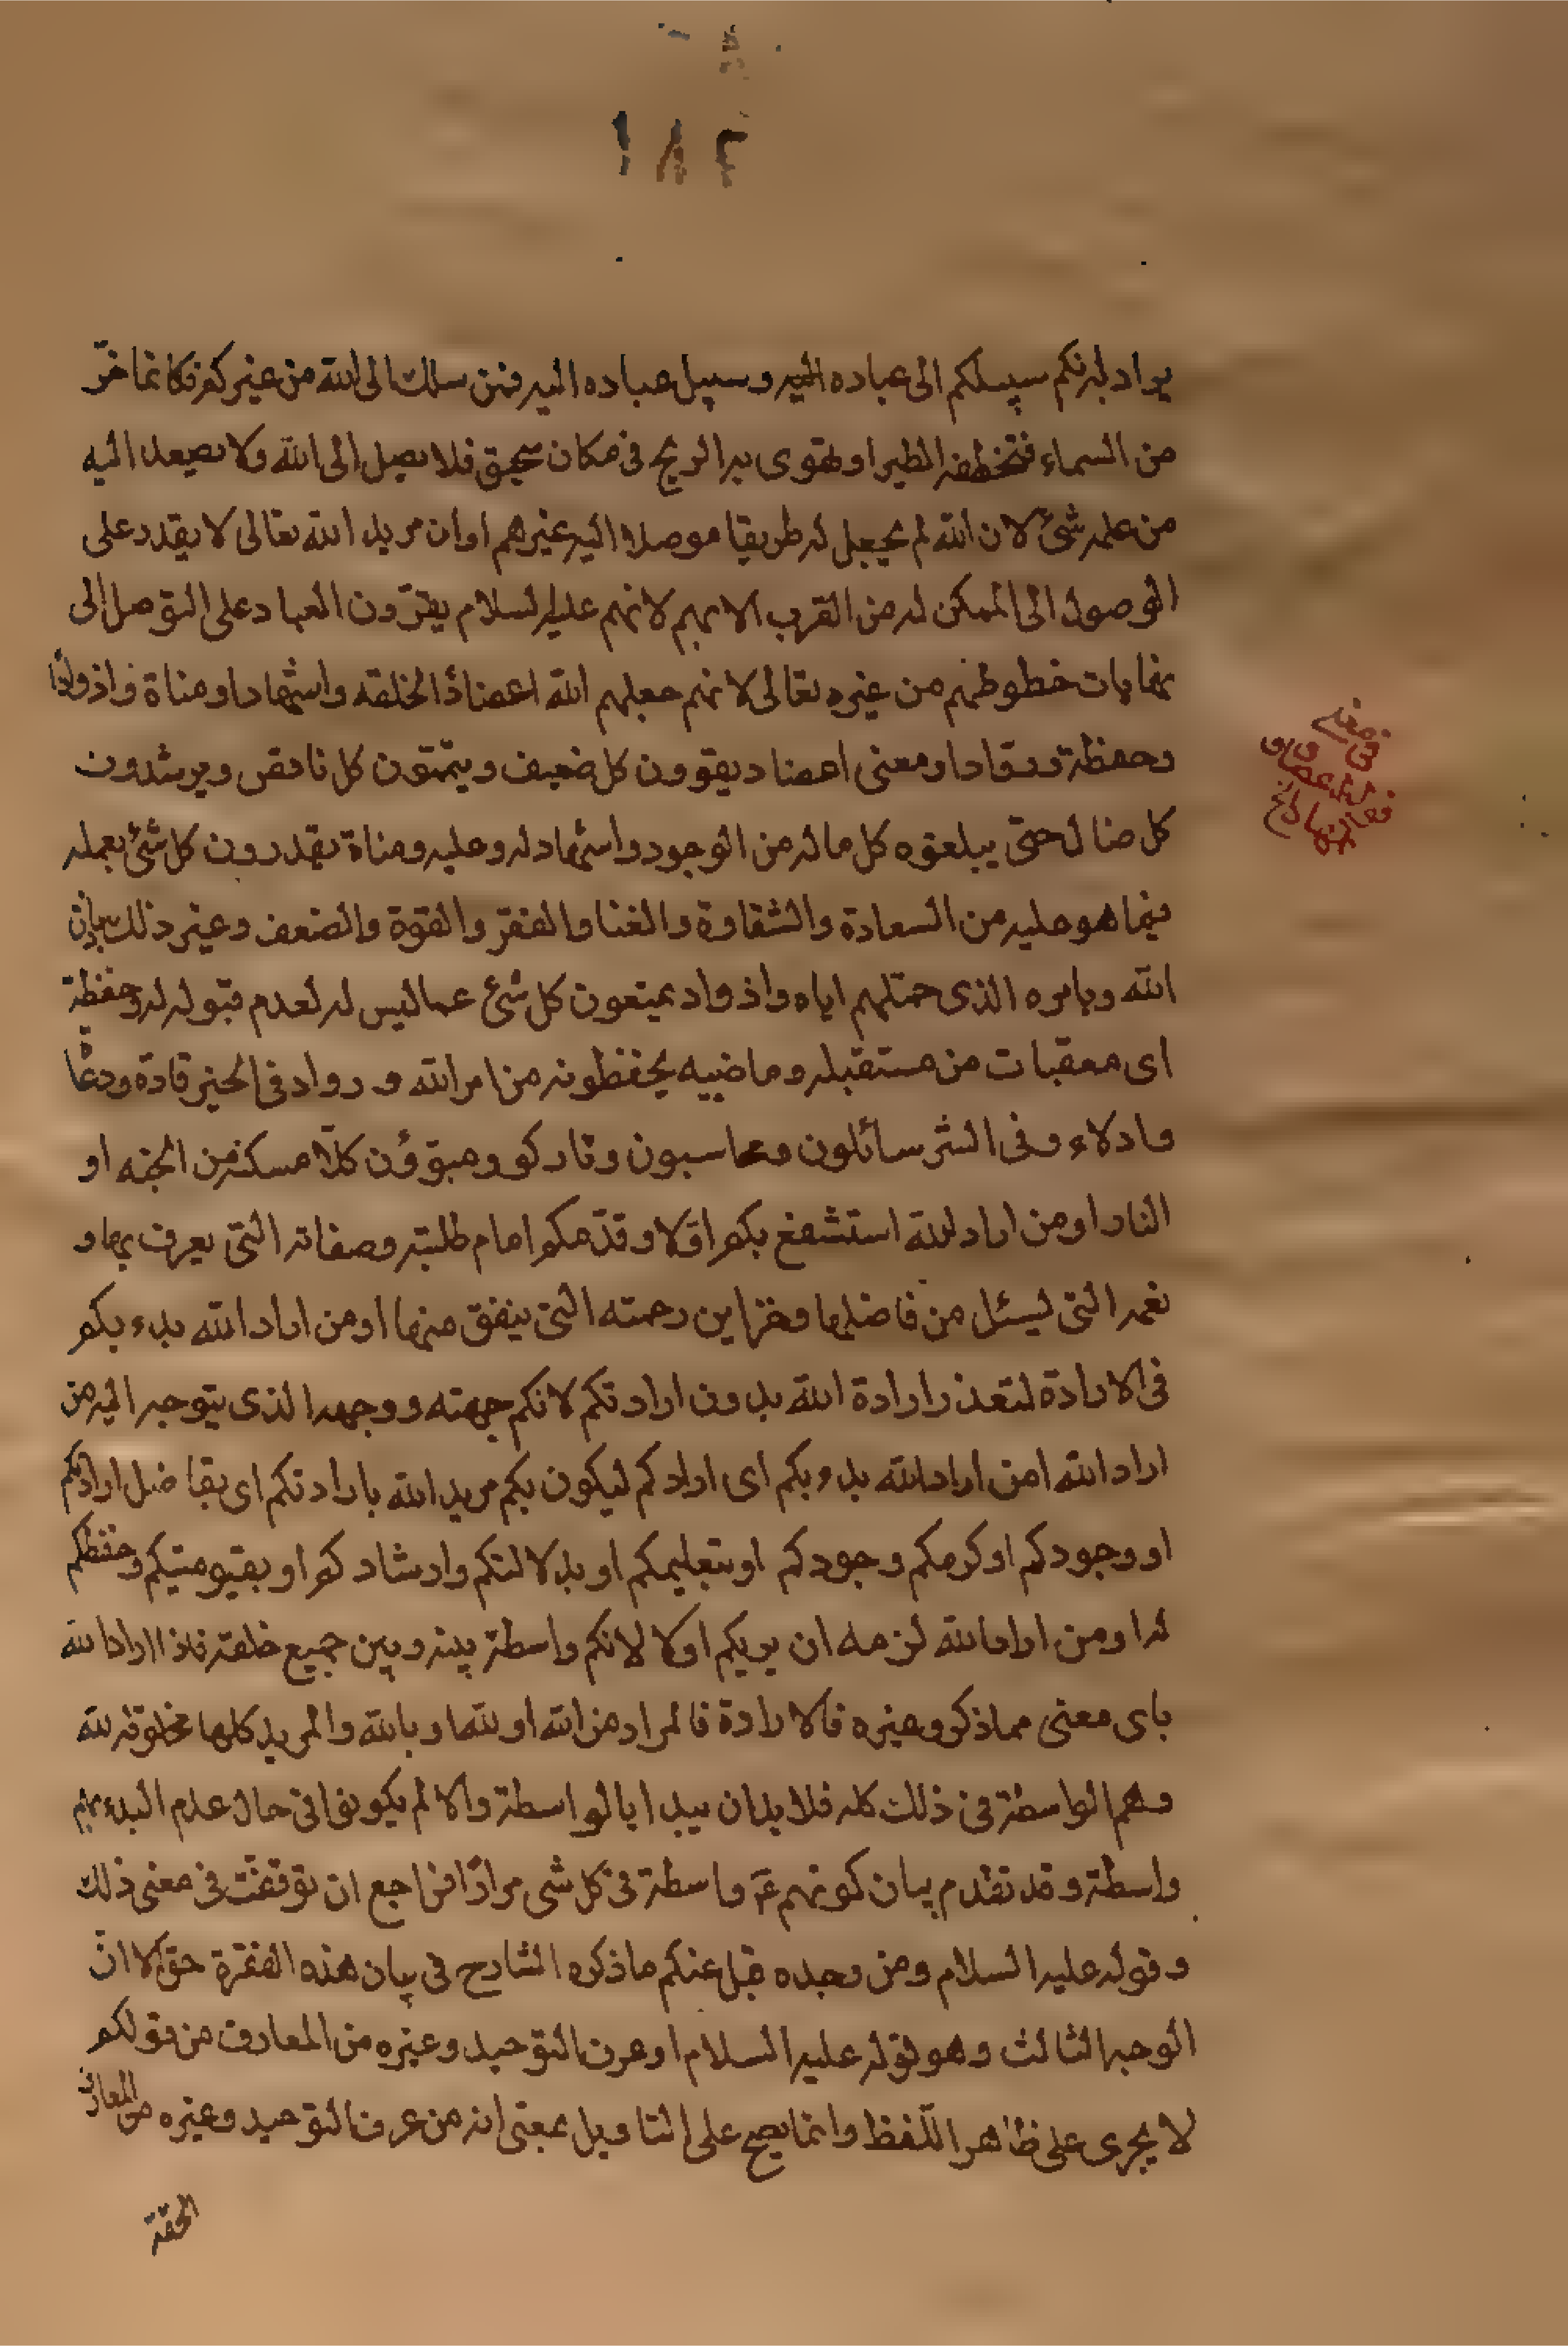 ١٨٢
يراد لانكم سبيلكم الى عباده الخير وسبيل عباده اليه فمن سلك الى الله من غيركم فكانما خرّ
من السماء فتخطفه الطير او تهوى به الريح فى مكان سحيق فلا يصل الى الله ولا يصعد اليه
من عمله شئ لان الله لم يجعل له طريقا موصلا اليه غيرهم او ان مريد الله تعالى لا يقدر على
الوصول الى الممكن له من القرب الا بهم لانهم عليهم السلام يقوّون العباد على التوصل الى
نهايات حظوظهم من غيره تعالى لانهم جعلهم الله اعضادًا لخلقه واشهادا ومناة واذوادا
وحفظة وروّادا ومعنى اعضاد يقوون كل ضعيف ويتممون كل ناقص ويرشدون
كل ضال حتى يبلغوه كل ماله من الوجود واشهاد له وعليه ومناة يقدرون كل شئ بعمله
فيما هو عليه من السعادة والشقاوة والغنا والفقر والقوة والضعف وغير ذلك باذن
الله وبامره الذى حمّلهم اياه واذواد يمنعون كل شئ عما ليس له لعدم قبوله له وحفظة
اى معقبات من مستقبله وماضيه يحفظونه من امر الله و روّاد فى الخير قادة ودعاة
وادلاء وفى الشر سائلون ومحاسبون وتاركو ومبوّؤن كلّا مسكنه من الجنه او
النار او من اراد الله استشفع بكم اوّلا وقدّمكم امام طلبته وصفاته التى يعرف بها و
نعمه التى ليسئل من فاضلها وخزاين رحمته التى ينفق منها او من اراد الله بدء بكم
فى الارادة لتعذر ارادة الله بدون ارادتكم لانكم جهته ووجهه الذى يتوجه اليه من
اراد الله او من اراد الله بدء بكم اى ارادكم ليكون بكم مريد الله بارادتكم اى بفاضل ارادتكم
او وجودكم او كرمكم وجودكم او بتعليمكم او بدلالتكم وارشادكم او بقيوميتكم وحفظكم
له او من اراد الله لزمه ان يريكم اولا لانكم واسطة بينه وبين جميع خلقه فاذا اراد الله
باى معنى مما ذكر وغيره فالارادة فالمراد من الله او لله او بالله والمريد كلها مخلوقة لله
وهم الواسطة فى ذلك كله فلا بد ان يبدا بالواسطة والا لم يكونوا فى حال عدم البدء بهم
واسطة وقد تقدم بيان كونهم عۤ واسطة فى كل شى مرارًا فراجع ان توقفت فى معنى ذلك
وقوله عليه السلام ومن وحده قبل عنكم ما ذكره الشارح فى بيان هذه الفقرة حق الا انّ
الوجه الثالث وهو قوله عليه السلام او عرف التوحيد وغيره من المعارف من قولكم
لا يجرى على ظاهر اللفظ وانما يصح على التاويل بمعنى انه من عرف التوحيد وغيره من المعارف
الحقة
فى معنى